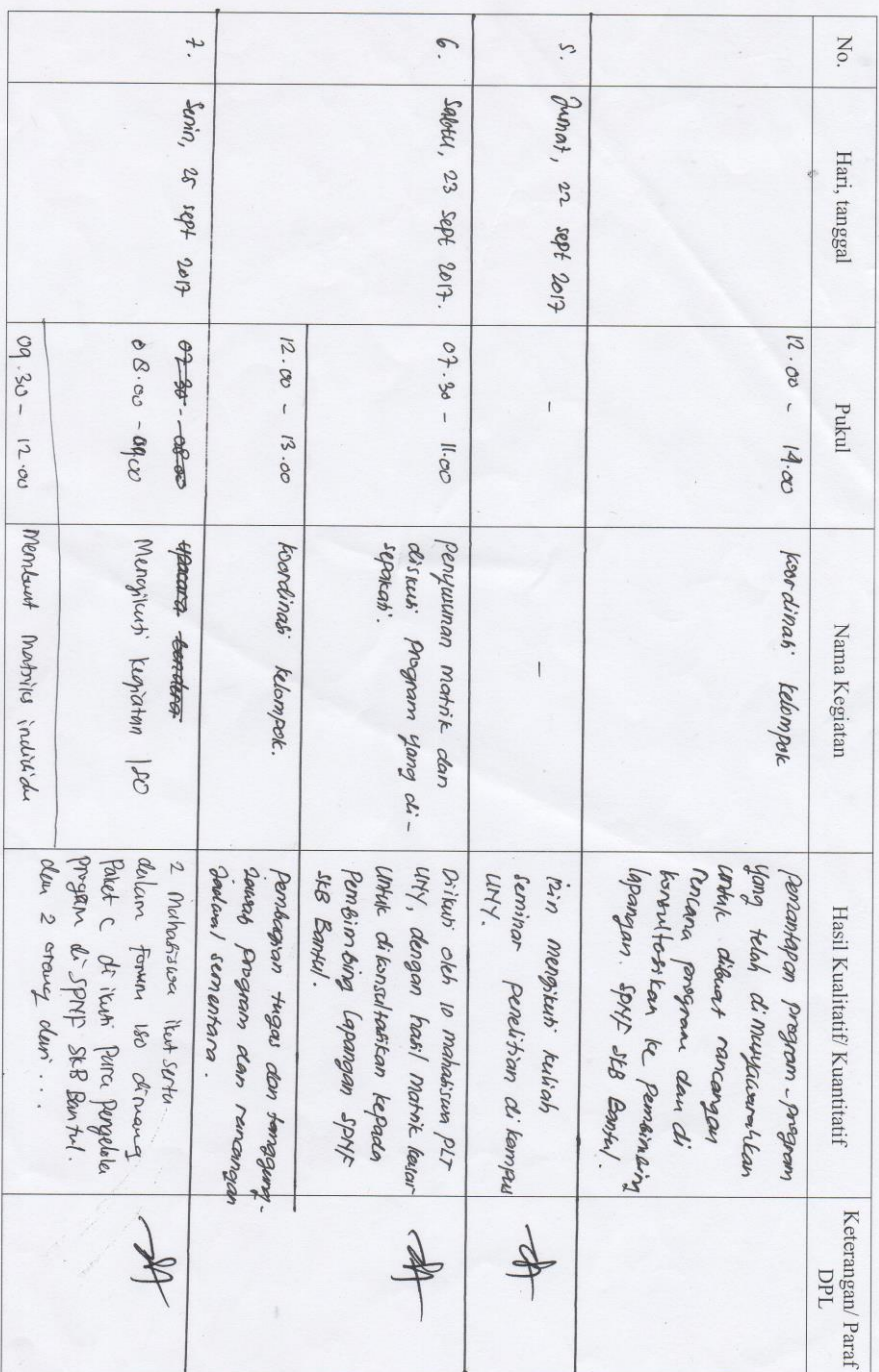 No.
Hari, tanggal
Pukul
Nama Kegiatan
Hasil Kualitatif/ Kuantitatif
Keterangan/ Paraf
DPL
12.00 - 14.00
koordinasi kelompok
pemantapan program-program
yang telah dimusyawarahkan
untuk dibuat rancangan
rencana program dan di
konsultasikan ke pembimbing
lapangan SPNF SKB Bantul.
5.
Jumat, 22 sept 2017
-
-
izin mengikuti kuliah
seminar penelitian di kampus
UNY.
6.
Sabtu, 23 sept 2017.
07.30 - 11.00
penyusunan matrik dan
diskusi program yang di-
sepakati.
Diikuti oleh 10 mahasiswa PLT
UNY, dengan hasil matrik kasar
untuk dikonsultasikan kepada
pembimbing lapangan SPNF
SKB Bantul.
12.00 - 13.00
koordinasi kelompok.
pembagian tugas dan tanggung-
jawab program dan rancangan
jadwal sementara.
7.
Senin, 25 sept 2017
07.30 - 08.00
upacara bendera
08.00 - 09.00
Mengikuti kegiatan ISO
2 mahasiswa ikut serta
dalam forum ISO diruang
Paket C di ikuti para pengelola
program di SPNF SKB Bantul.
dan 2 orang dari ...
09.30 - 12.00
Membuat matriks individu